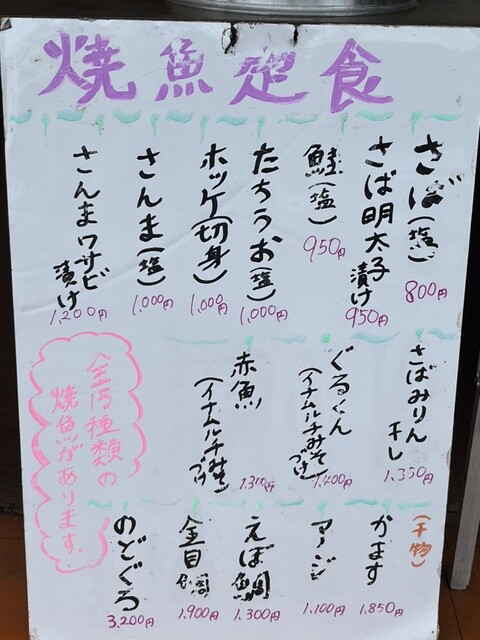 焼魚定食
さば(塩)
800円
さば明太子漬け
950円
鮭(塩)
950円
たちうお(塩)
1,000円
ホッケ(切身)
1,000円
さんま(塩)
1,000円
さんまワサビ漬け
1,200円
さばみりん干し
1,350円
ぐるくん
(イナムルチみそづけ)
1,400円
赤魚
(イナムルチみそづけ)
1,300円
全15種類の
焼魚があります。
(干物)
かます
1,850円
アージ
1,100円
えぼ鯛
1,300円
金目鯛
1,900円
のどぐろ
3,200円